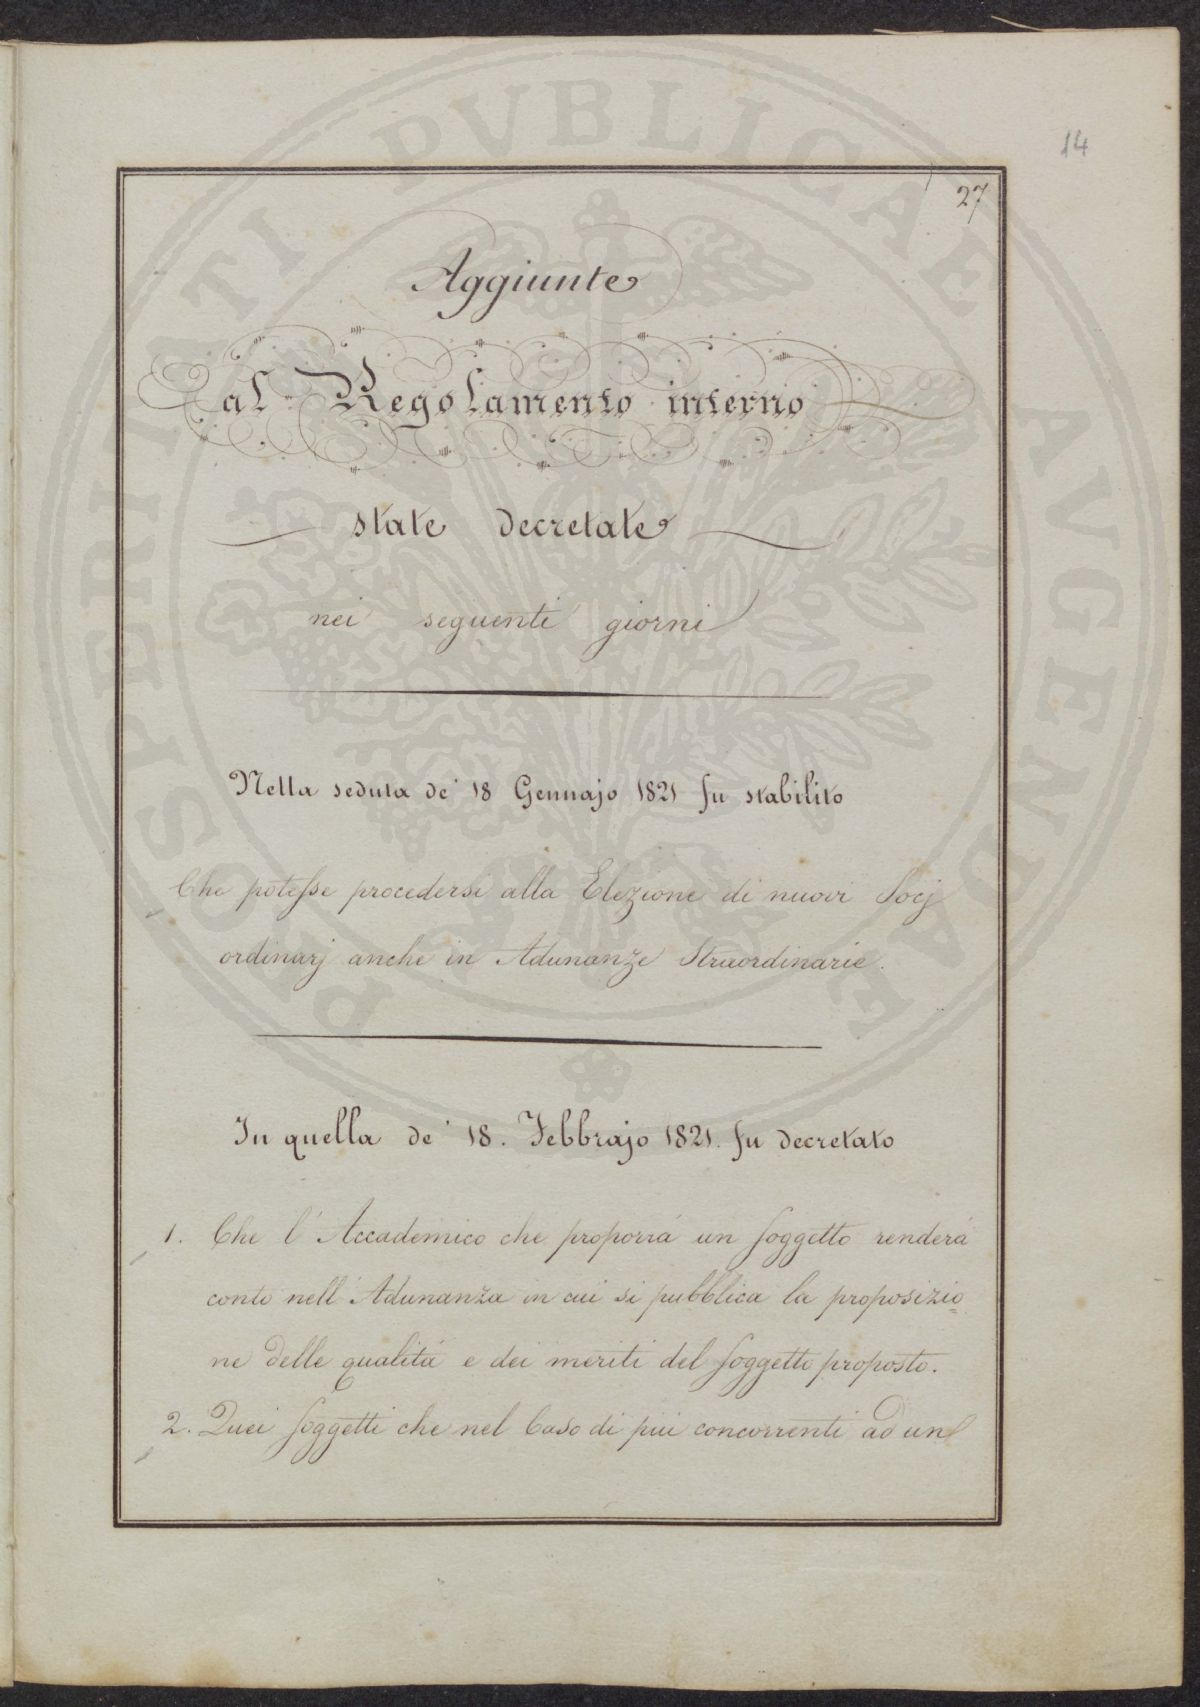 14
27
Aggiunte
al Regolamento interno
state decretate
nei seguenti giorni
Nella seduta de' 18 Gennajo 1821 fu stabilito
Che potesse procedersi alla Elezione di nuovi Socj
ordinarj anche in Adunanze Straordinarie.
In quella de' 18. Febbrajo 1821. fu decretato
1. Che l'Accademico che proporrá un soggetto renderá
conto nell'Adunanza in cui si pubblica la proposizio=
ne delle qualitá e dei meriti del soggetto proposto.
2. Quei soggetti che nel Caso di piú concorrenti ad un
PROSPERITATI PVBLICAE AVGENDAE